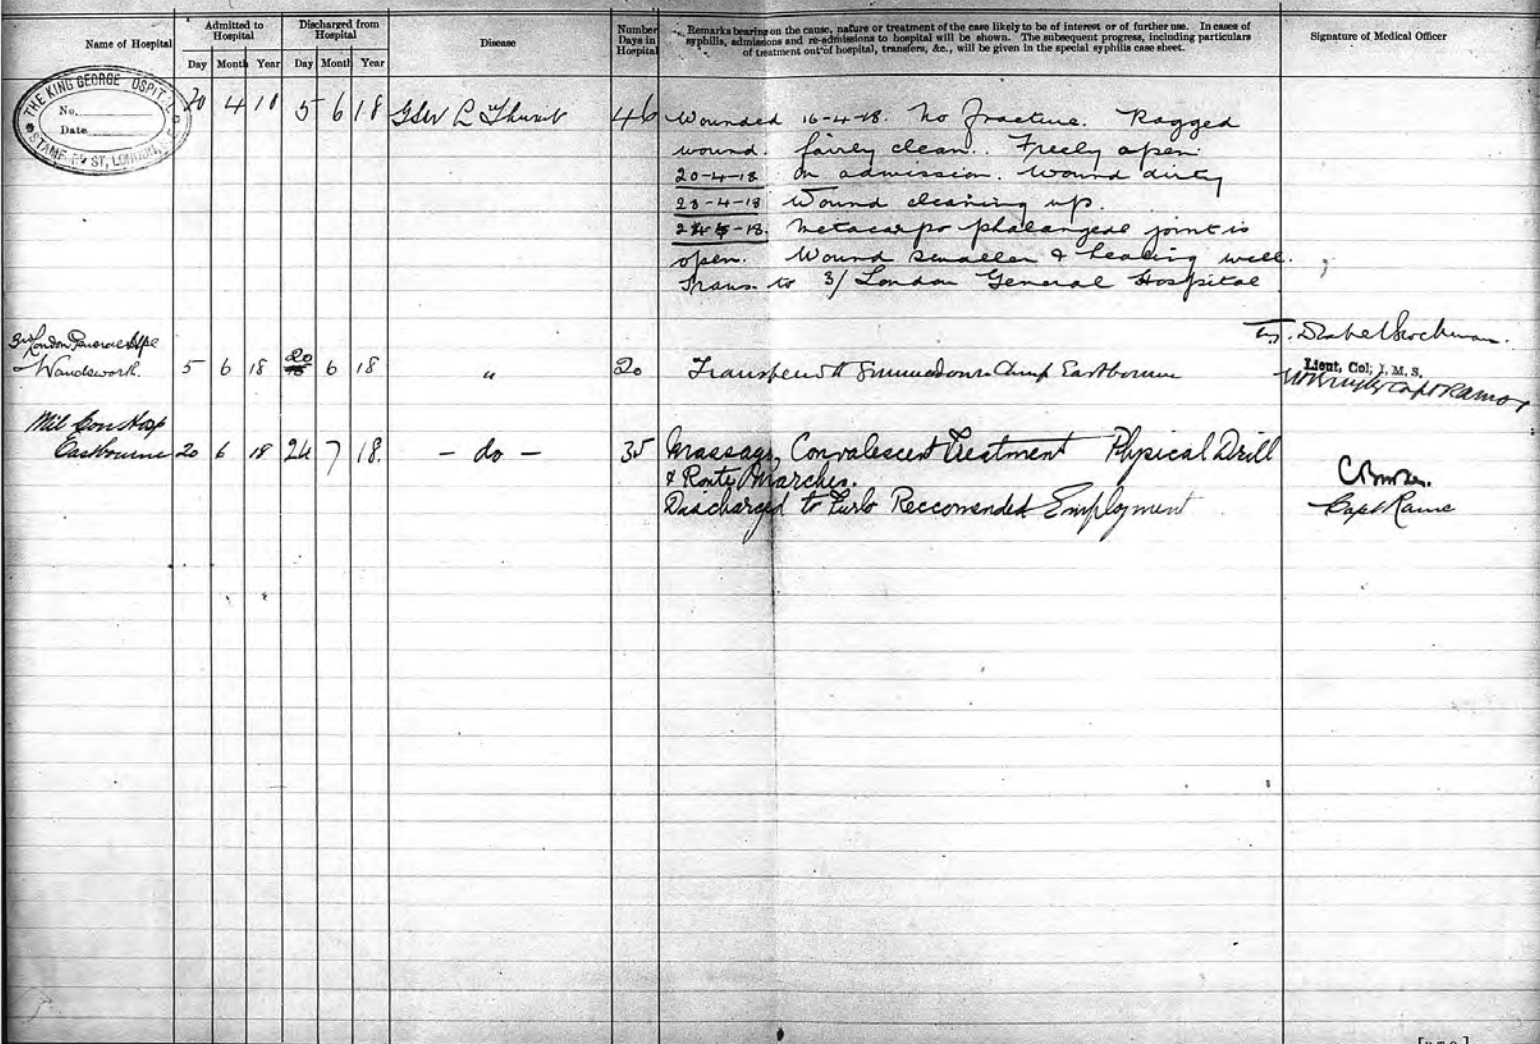 Name of Hospital
Admitted to Hospital
Day Month Year
Discharged from Hospital
Day Month Year
Disease
Number Days in Hospital
Remarks bearing on the cause, nature or treatment of the case likely to be of interest or of further use. In cases of
syphilis, admissions and re-admissions to hospital will be shown. The subsequent progress, including particulars
of treatment out of hospital, transfers, &c., will be given in the special syphilis case sheet.
Signature of Medical Officer
THE KING GEORGE OSPIT
No.
Date
STAMF RD ST, LONDON,
20 4 18 5 6 18 GSW L Thumb 46 Wounded 16-4-18. No fracture. Ragged
wound. fairly clean.. Freely open.
20-4-18 On admission. Wound dirty
23-4-18 Wound cleaning up.
-18. Metacarpo phalangeal joint is
open. Wound smaller & healing well.
Trans. to 3/ London General Hospital
3rd London General Hospl
Wandsworth. 5 6 18 20 6 18 " 20 Transferred to Summerdown Camp Eastbourne
Lieut. Col; I. M. S.
Mil Con Hosp
Eastbourne 20 6 18 24 7 18. - do - 35 Massage, Convalescent Treatment Physical Drill
& Route Marches.
Discharged to Furlo Reccomended Employment
Capt Ramc